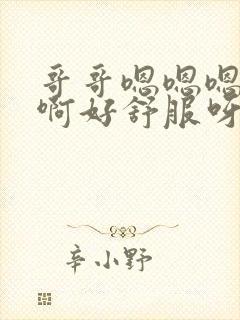 哥哥嗯嗯嗯
啊好舒服呀
辛小野